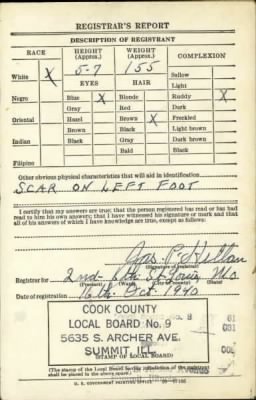 REGISTRAR'S REPORT
DESCRIPTION OF REGISTRANT
RACE HEIGHT (Approx.) WEIGHT (Approx.) COMPLEXION
5-7 155 Sallow
White X EYES HAIR Light
Negro Blue X Blonde Ruddy X
Gray Red Dark
Oriental Hazel Brown X Freckled
Brown Black Light brown
Indian Black Gray Dark brown
Bald Black
Filipino
Other obvious physical characteristics that will aid in identification
SCAR ON LEFT FOOT
I certify that my answers are true; that the person registered has read or has had
read to him his own answers; that I have witnessed his signature or mark and that
all of his answers of which I have knowledge are true, except as follows:
(Signature of registrar)
Registrar for 2nd 6th St Louis Mo.
(Precinct) (Ward) (City or county) (State)
Date of registration 16th Oct. 1940
COOK COUNTY
LOCAL BOARD No. 9
5635 S. ARCHER AVE.
SUMMIT ILL.
(STAMP OF LOCAL BOARD)
(The stamp of the Local Board having jurisdiction of the registrant
shall be placed in the above space.)
U. S. GOVERNMENT PRINTING OFFICE